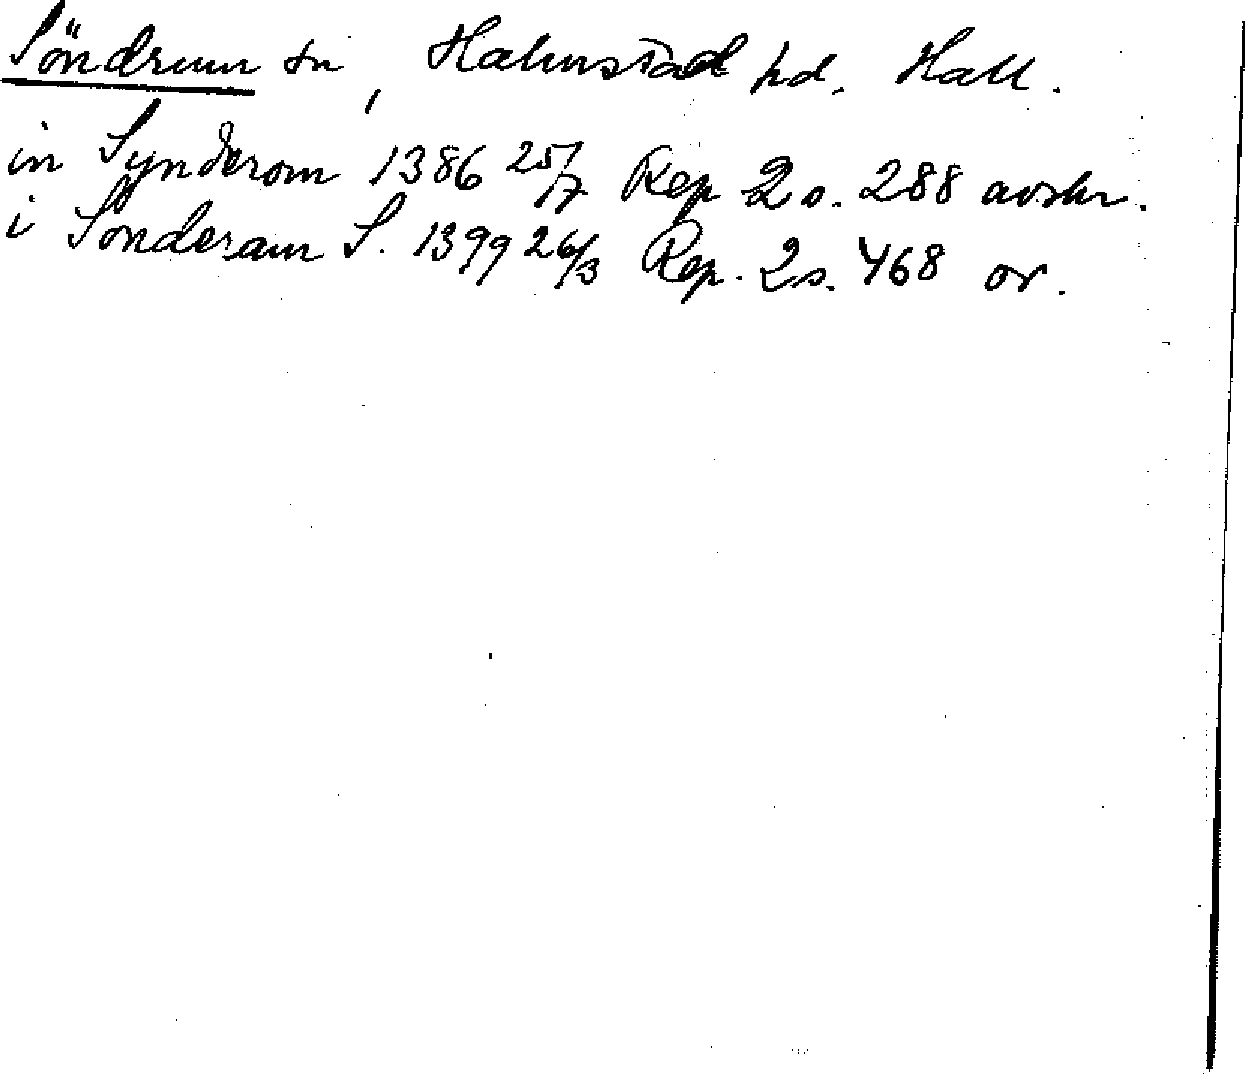 Söndrum sn, Halmstad hd. Hall.
in Synderom 1386 25/7 Rep 2 s. 288 avskr.
i Sønderam S. 1399 26/3 Rep. 2 s. 468 or.